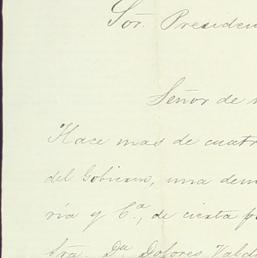 Sor. Presiden
Señor de
Hace mas de cuatr
del Gobierno, una dem
ría y Ca., de cierta
bra. Da Dolores Vald